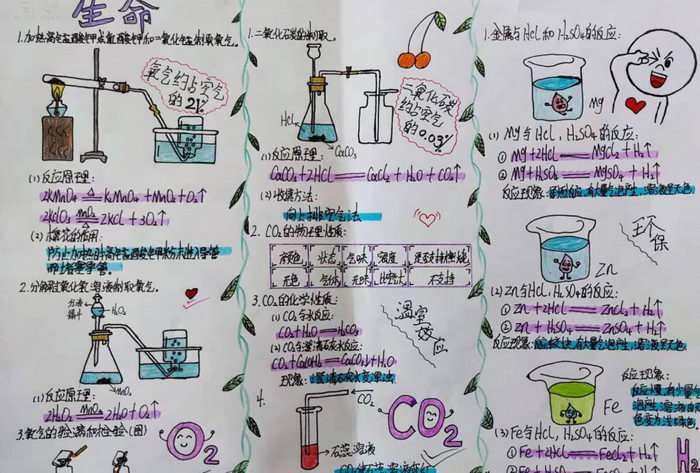 生命
1.加热高锰酸钾或氯酸钾和二氧化锰制取氧气。
氧气约占空气
的21%
(1)反应原理:
2KMnO₄ =△= K₂MnO₄+MnO₂+O₂↑
2KClO₃ =MnO₂△= 2KCl+3O₂↑
(2)棉花的作用:
防止加热时高锰酸钾粉末进入导管
而堵塞导管。
2.分解过氧化氢溶液制取氧气。
分液
漏斗
H₂O₂
MnO₂
(1)反应原理:
2H₂O₂ =MnO₂= 2H₂O+O₂↑
3.氧气的验满和检验(图)
O₂
1.二氧化碳的制取。
HCl
CaCO₃
二氧化碳
约占空气
的0.03%
(1)反应原理:
CaCO₃+2HCl = CaCl₂+H₂O+CO₂↑
(2)收集方法:
向上排空气法
2.CO₂的物理性质:
颜色 状态 气味 密度 是否支持燃烧
无色 气体 无味 比空气大 不支持
3.CO₂的化学性质:
温室
效应
(1)CO₂与水反应:
CO₂+H₂O=H₂CO₃
(2)CO₂与澄清石灰水反应:
CO₂+Ca(OH)₂=CaCO₃↓+H₂O
现象:澄清石灰水变浑浊
4.
CO₂
CO₂
石蕊溶液
1.金属与HCl和H₂SO₄的反应:
Mg
(1)Mg与HCl、H₂SO₄的反应:
①Mg+2HCl=MgCl₂+H₂↑
②Mg+H₂SO₄=MgSO₄+H₂↑
反应现象:
王不
保
Zn
(2)Zn与HCl、H₂SO₄的反应:
①Zn+2HCl=ZnCl₂+H₂↑
②Zn+H₂SO₄=ZnSO₄+H₂↑
反应现象:
Fe
反应现象:
(3)Fe与HCl、H₂SO₄的反应:
①Fe+2HCl=FeCl₂+H₂↑
H₂